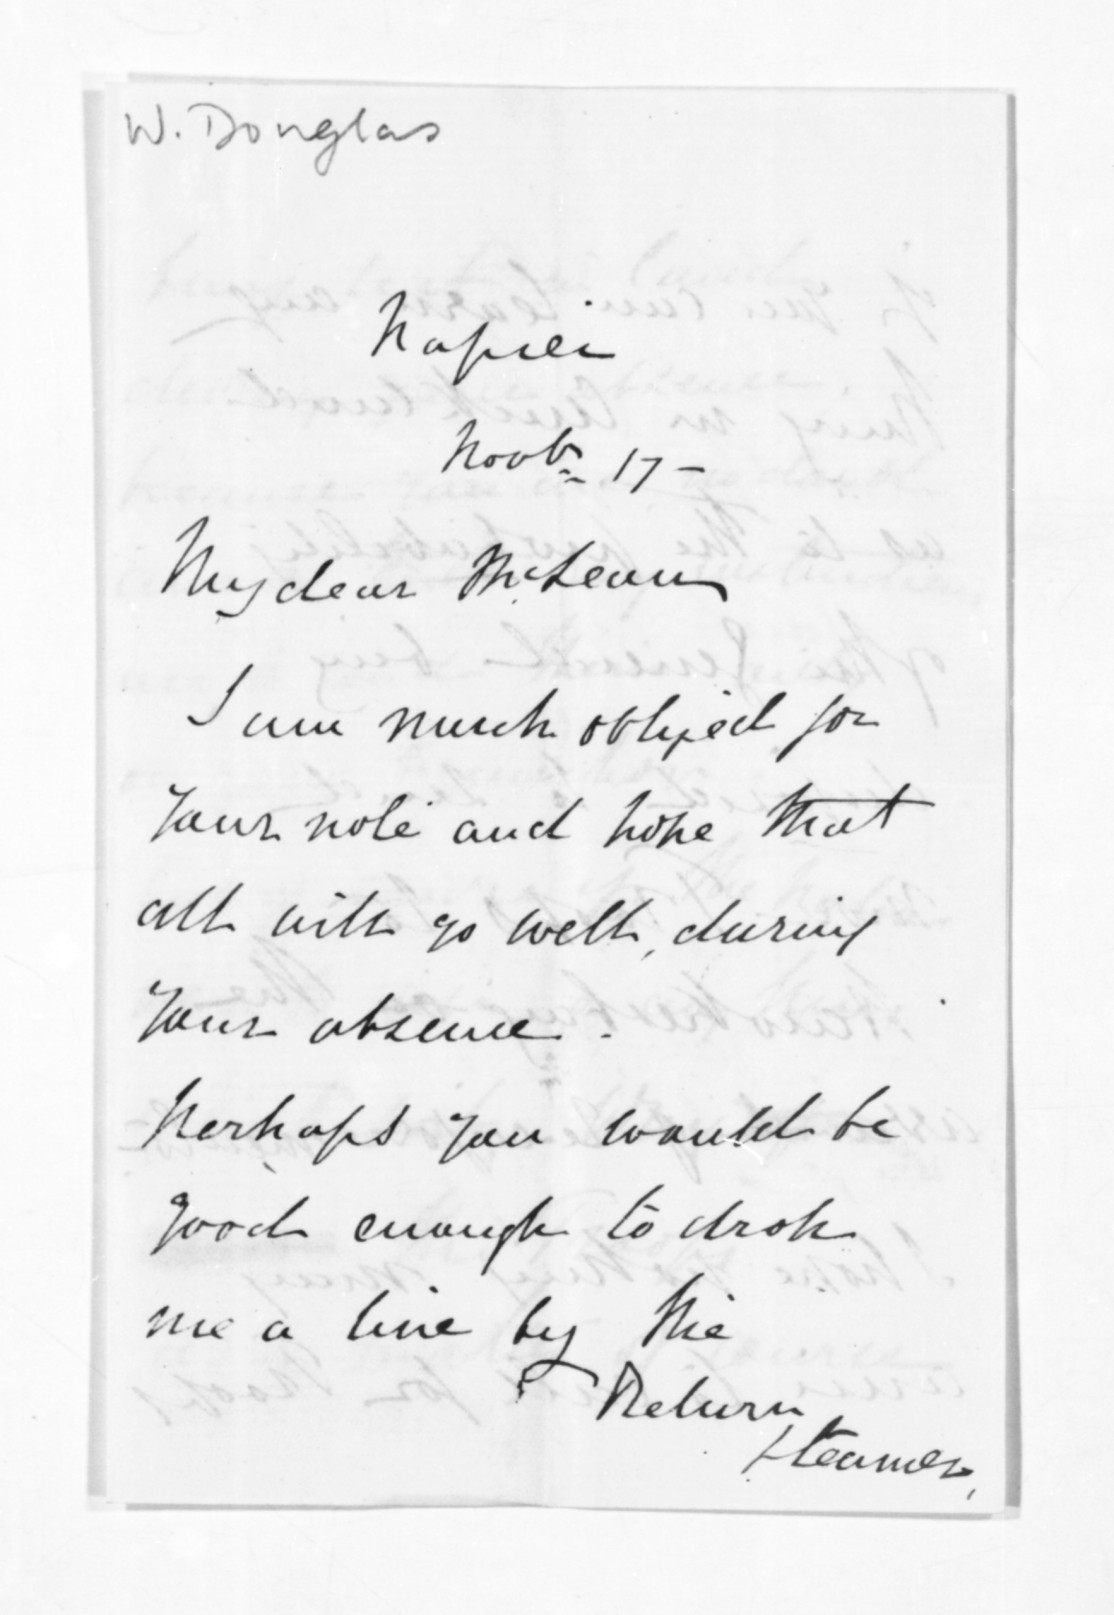 W. Douglas
Napier
Novb 17 -
My dear McLean
I am much obliged for
your note and hope that
all will go well, during
your absence.
Perhaps you would be
good enough to drop
me a line by the
Return
Steamer,